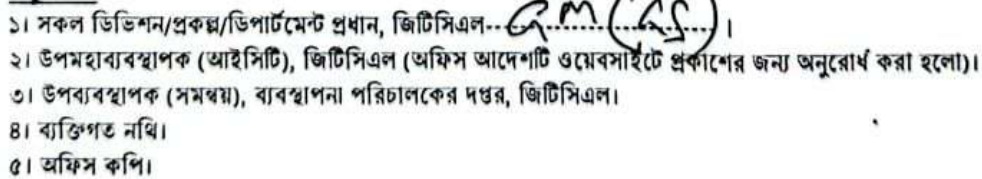 ১। সকল ডিভিশন/প্রকল্প/ডিপার্টমেন্ট প্রধান, জিটিসিএল--GM (GS)......।
২। উপমহাব্যবস্থাপক (আইসিটি), জিটিসিএল (অফিস আদেশটি ওয়েবসাইটে প্রকাশের জন্য অনুরোধ করা হলো)।
৩। উপব্যবস্থাপক (সমন্বয়), ব্যবস্থাপনা পরিচালকের দপ্তর, জিটিসিএল।
৪। ব্যক্তিগত নথি।
৫। অফিস কপি।